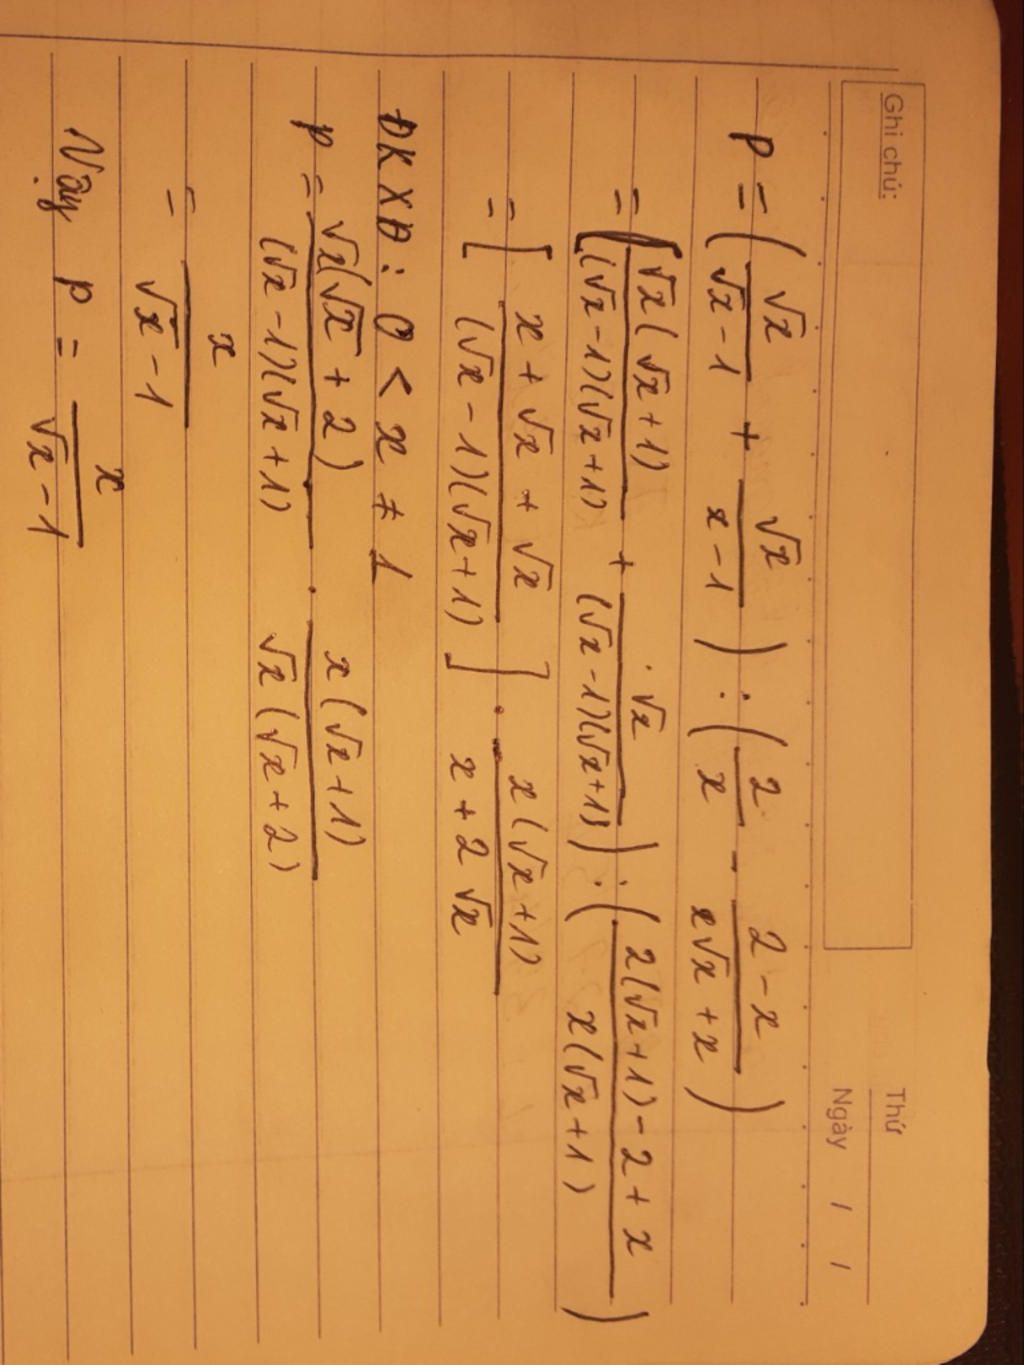 Ghi chú:
Thứ
Ngày / /
P = ( √x / (√x - 1) + √x / (x - 1) ) : ( 2 / x - (2 - x) / (x√x + x) )
= [ √x(√x + 1) / (√x - 1)(√x + 1) + √x / (√x - 1)(√x + 1) ) : ( (2(√x + 1) - 2 + x) / x(√x + 1) )
= [ (x + √x + √x) / (√x - 1)(√x + 1) ] . x(√x + 1) / (x + 2√x)
ĐKXĐ: 0 < x ≠ 1
P = √x(√x + 2) / (√x - 1)(√x + 1) . x(√x + 1) / √x(√x + 2)
= x / (√x - 1)
Vậy P = x / (√x - 1)